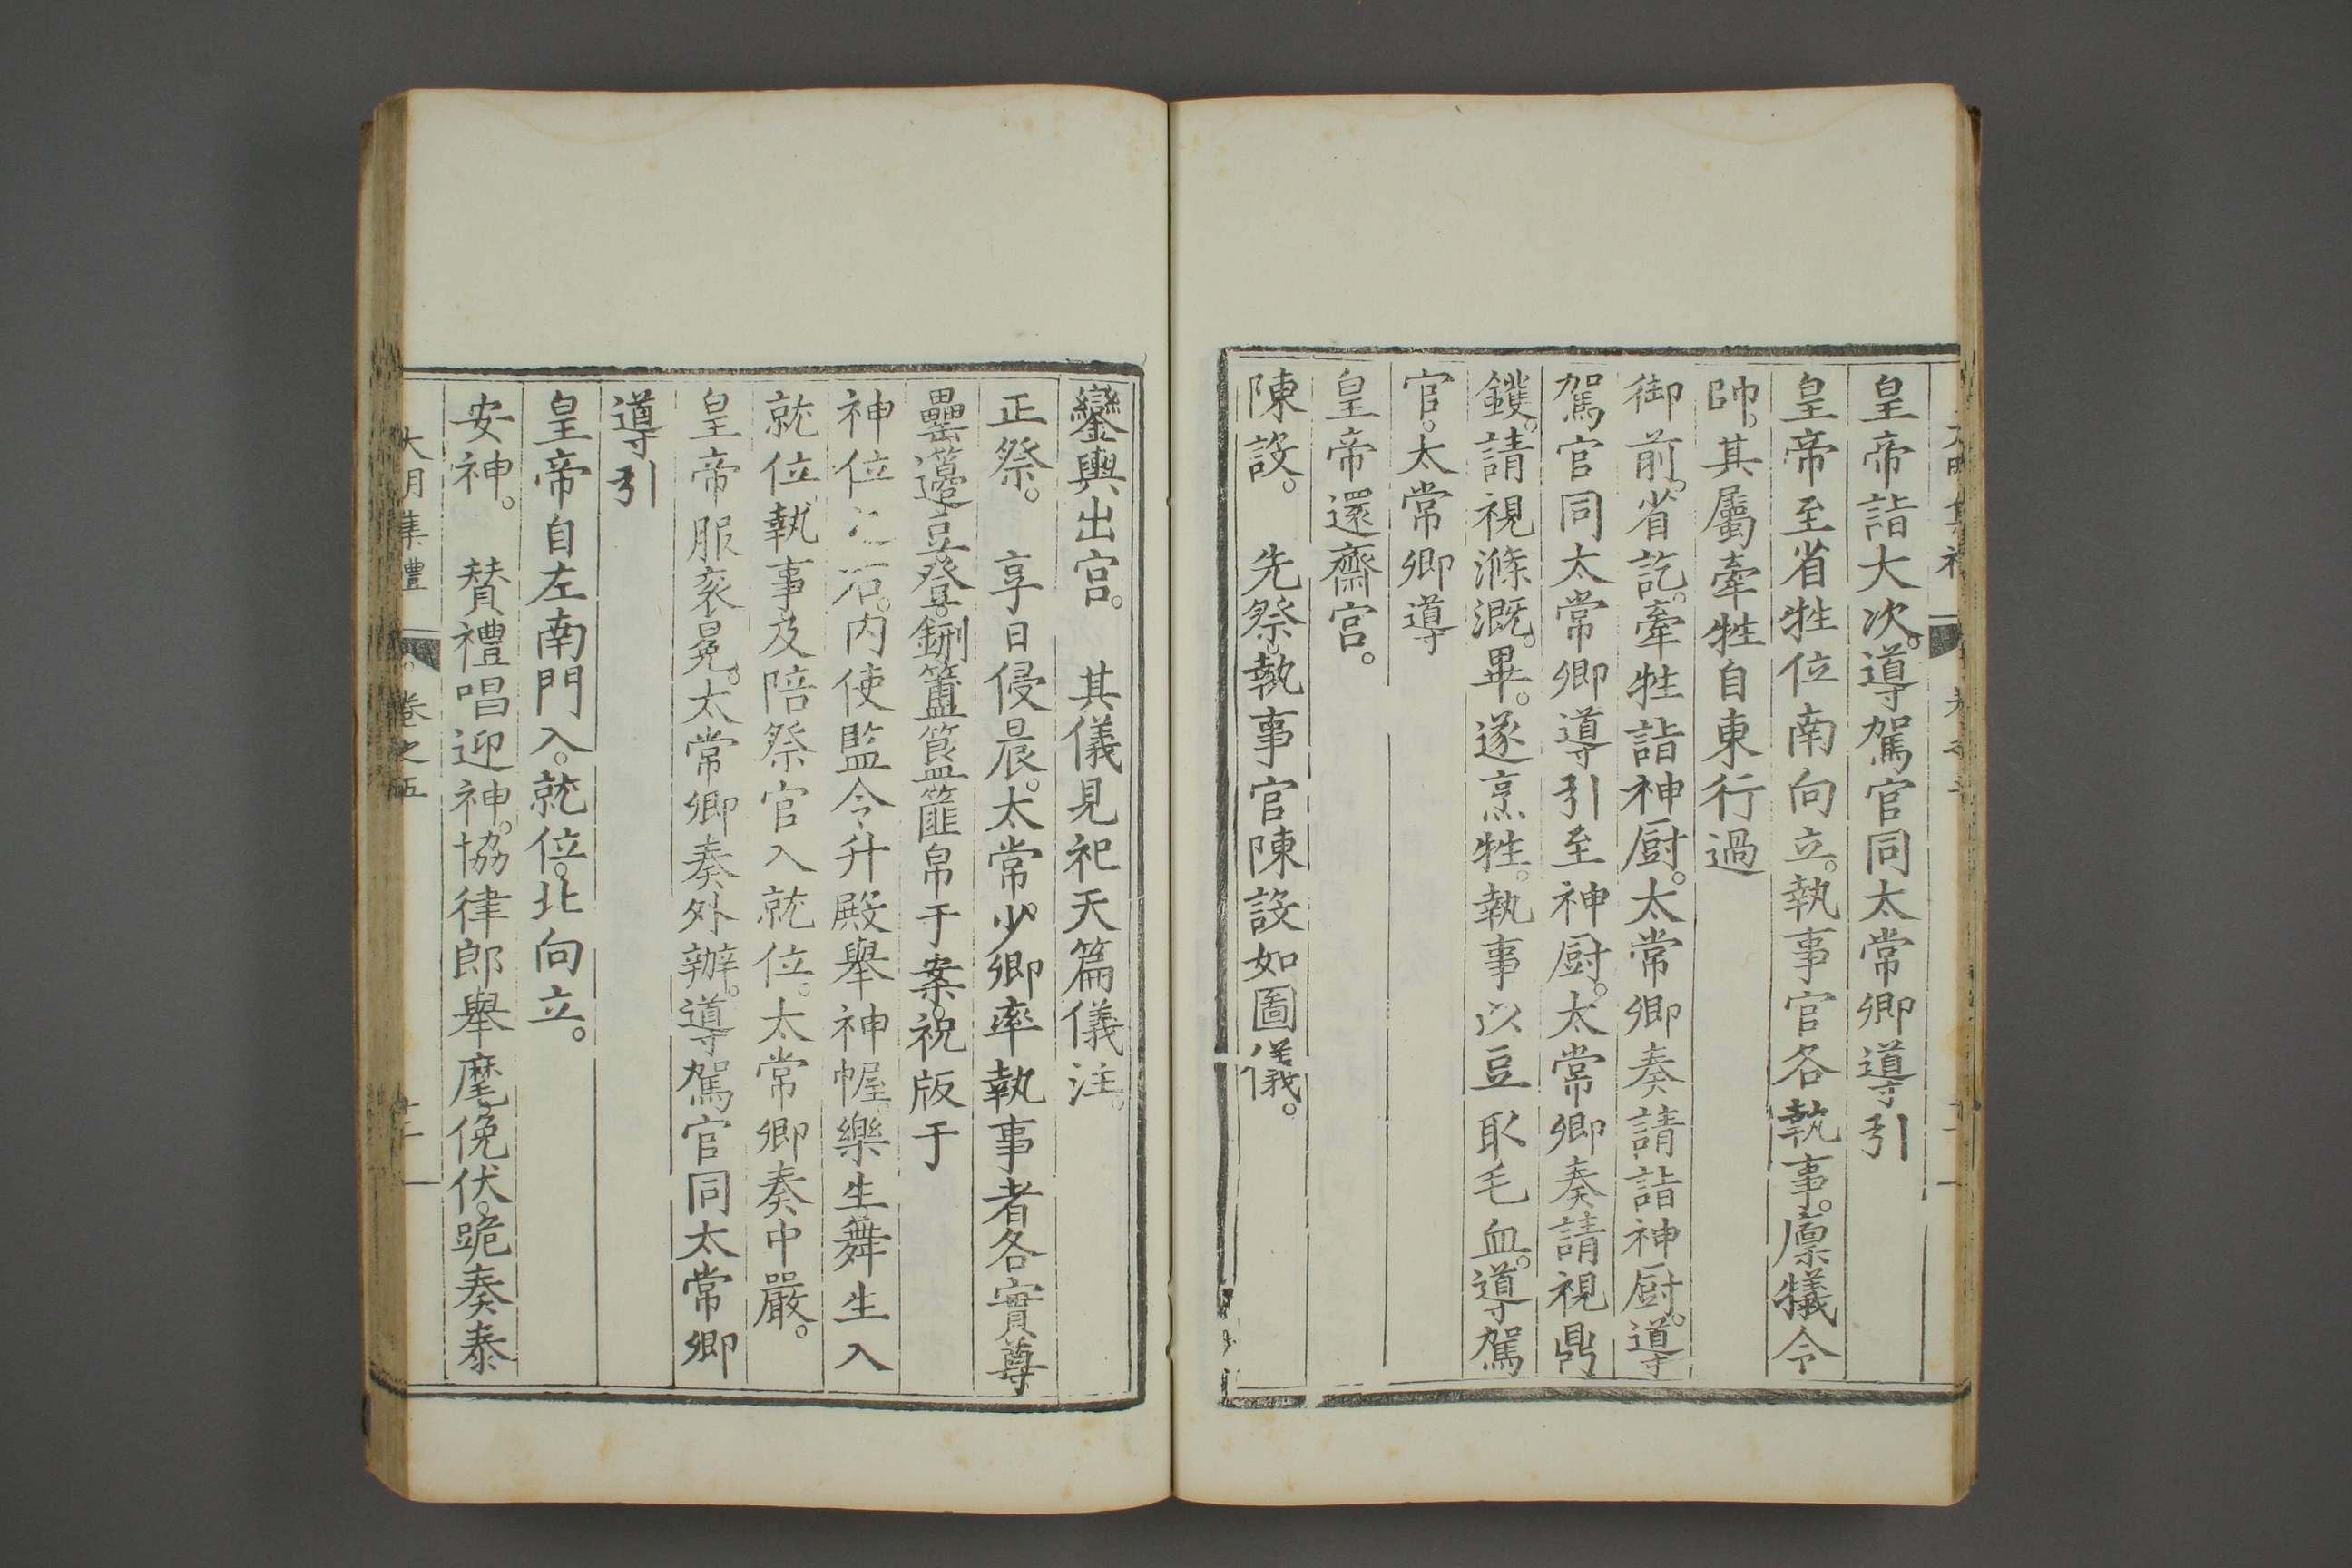 皇帝詣大次。導駕官同太常卿導引
皇帝至省牲位南向立。執事官各執事。廪犧令
帥。其屬牽牲自東行過
御前。省訖。牽牲詣神厨。太常卿奏請詣神厨。導
駕官同太常卿導引至神厨。太常卿奏請視鼎
鑊。請視滌溉。畢。遂烹牲。執事以豆取毛血。導駕
官。太常卿導
皇帝還齋宮。
陳設。 先祭。執事官陳設如圖儀。
鑾輿出宮。 其儀見祀天篇儀注。
正祭。 享日侵晨。太常少卿率執事者各實尊
罍籩豆登。鉶簠簋篚帛于案。祝版于
神位之右。内使監令升殿舉神幄。樂生。舞生入
就位。執事及陪祭官入就位。太常卿奏中嚴。
皇帝服衮冕。太常卿奏外辦。導駕官同太常卿
導引
皇帝自左南門入。就位。北向立。
安神。 贊禮唱迎神。協律郎舉麾。俛伏。跪。奏泰
大明集禮 卷之五